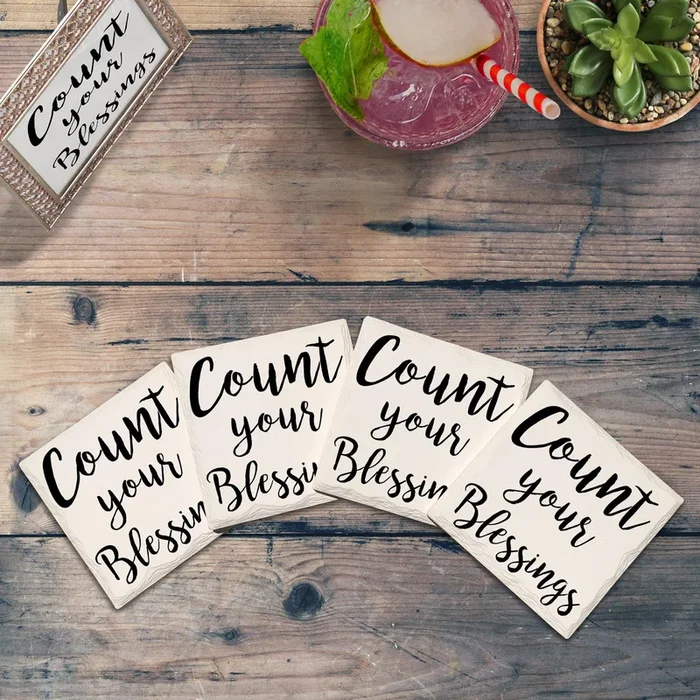 Count
your
Blessings
Count
your
Blessin
Count
your
Blessi
Count
your
Blessin
Count
your
Blessings